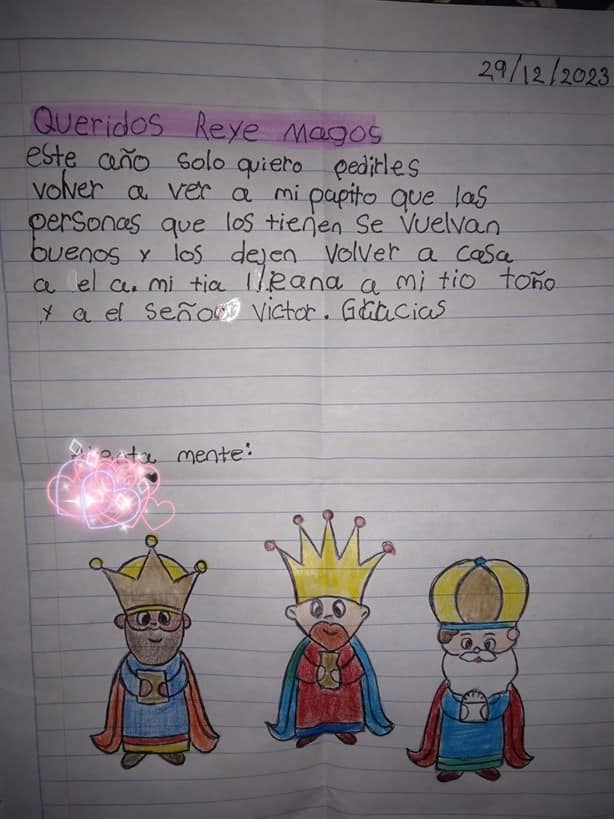 29/12/2023
Queridos Reye Magos
este año solo quiero pedirles
volver a ver a mi papito que las
personas que los tienen se vuelvan
buenos y los dejen volver a casa
a el a. mi tia a mi tio toño
y a el señor victor. Gracias
mente: